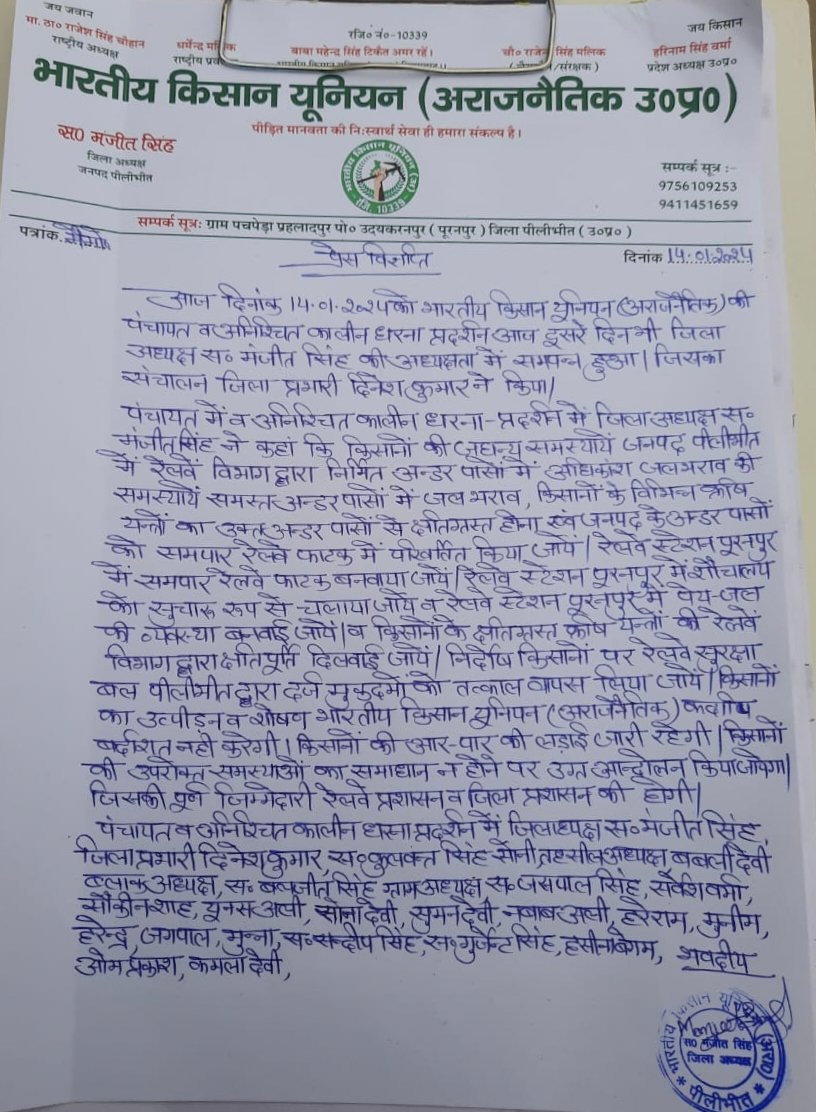 जय जवान
जय किसान
रजि० नं०-10339
मा. ठा० राजेश सिंह चौहान
राष्ट्रीय अध्यक्ष
धर्मेन्द्र मलिक
राष्ट्रीय प्रव
बाबा महेन्द्र सिंह टिकैत अमर रहें।
चौ० राजेन्द्र सिंह मलिक
/संरक्षक )
हरिनाम सिंह वर्मा
प्रदेश अध्यक्ष उ०प्र०
भारतीय किसान यूनियन (अराजनैतिक उ०प्र०)
पीड़ित मानवता की नि:स्वार्थ सेवा ही हमारा संकल्प है।
स0 मंजीत सिंह
जिला अध्यक्ष
जनपद पीलीभीत
भारतीय किसान यूनियन (अ)
रजि. 10339
सम्पर्क सूत्र :-
9756109253
9411451659
सम्पर्क सूत्र: ग्राम पचपेड़ा प्रहलादपुर पो० उदयकरनपुर ( पूरनपुर ) जिला पीलीभीत ( उ०प्र० )
पत्रांक.
दिनांक 14.01.2024
प्रेस विज्ञप्ति
आज दिनांक 14.01.2024 को भारतीय किसान यूनियन (अराजनैतिक) की
पंचायत व अनिश्चित कालीन धरना प्रदर्शन आज दूसरे दिन भी जिला
अध्यक्ष स० मंजीत सिंह की अध्यक्षता में समपन्न हुआ। जिसका
संचालन जिला प्रभारी दिनेश कुमार ने किया।
पंचायत में व अनिश्चित कालीन धरना-प्रदर्शन में जिला अध्यक्ष स०
मंजीत सिंह ने कहां कि किसानों की जघन्य समस्यायें जनपद पीलीभीत
में रेलवें विभाग द्वारा निर्मित अन्डर पासों में अधिकांश जलभराव की
समस्यायें समस्त अन्डर पासों में जल भराव, किसानों के विभिन्न कृषि
यन्त्रों का उक्त अन्डर पासों से क्षतिग्रस्त होना एवं जनपद के अन्डर पासों
को समपार रेलवे फाटक में परिवर्तित किया जायें। रेलवे स्टेशन पूरनपुर
में समपार रेलवे फाटक बनवाया जायें। रेलवे स्टेशन पूरनपुर में शौचालय
को सुचारू रूप से चलाया जाये व रेलवे स्टेशन पूरनपुर में पेय-जल
की व्यवस्था बनवाई जायें। व किसानों के क्षतिग्रस्त कृषि यन्त्रों की रेलवें
विभाग द्वारा क्षतिपूर्ति दिलवाई जायें। निर्दोष किसानों पर रेलवे सुरक्षा
बल पीलीभीत द्वारा दर्ज मुकदमों को तत्काल वापस लिया जायें। किसानों
का उत्पीड़न व शोषण भारतीय किसान यूनियन (अराजनैतिक) कतापि
बर्दाशत नही करेगी। किसानों की आर-पार की लड़ाई जारी रहेगी। किसानों
की उपरोक्त समस्याओं का समाधान न होने पर उग्र आन्दोलन किया जायेगा।
जिसकी पूर्ण जिम्मेदारी रेलवे प्रशासन व जिला प्रशासन की होगी।
पंचायत व अनिश्चित कालीन धरना प्रदर्शन में जिलाध्यक्ष स० मंजीत सिंह,
जिला प्रभारी दिनेश कुमार, स० कुलवंत सिंह सोनी तहसील अध्यक्ष बबली देवी
ब्लाक अध्यक्ष, स० बलजीत सिंह ग्राम अध्यक्ष स० जसपाल सिंह, सर्वेश वर्मा,
सौकीन शाह, यूनस अली, सोना देवी, सुमन देवी, नबाब अली, हरेराम, मुनीम,
हरेन्द्र, जगपाल, मुन्ना, स० सन्दीप सिंह, स० गुर्जन्ट सिंह, हसीना बेगम, भवदीय
ओम प्रकाश, कमला देवी,
भारतीय किसान यूनियन (अरा०)
स0 मंजीत सिंह
जिला अध्यक्ष
पीलीभीत